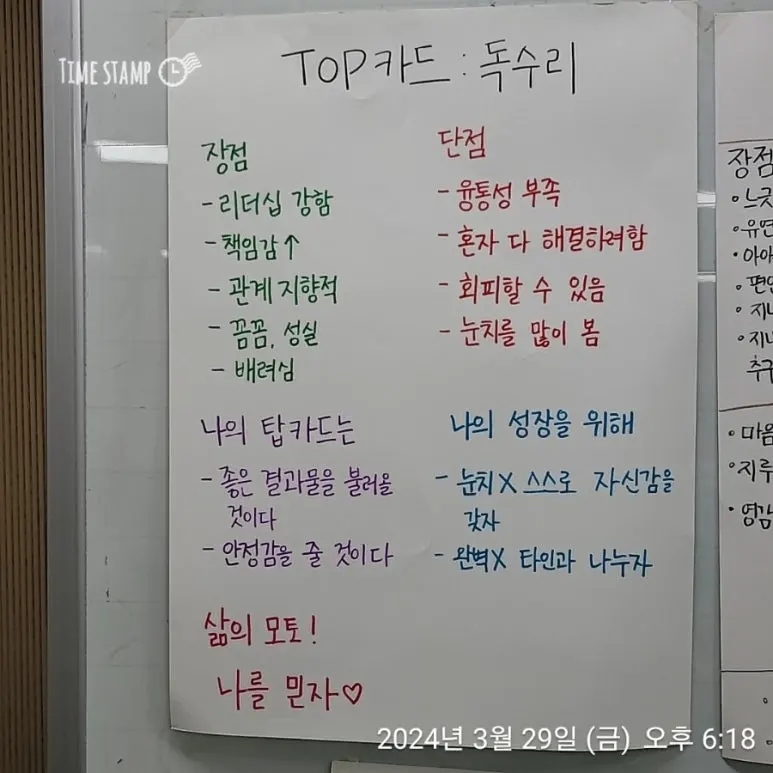 TIMESTAMP
TOP카드 : 독수리
장점
- 리더십 강함
- 책임감↑
- 관계 지향적
- 꼼꼼, 성실
- 배려심
단점
- 융통성 부족
- 혼자 다 해결하려함
- 회피할 수 있음
- 눈치를 많이 봄
나의 탑카드는
- 좋은 결과물을 불러올
것이다
- 안정감을 줄 것이다
나의 성장을 위해
- 눈치X 스스로 자신감을
갖자
- 완벽X 타인과 나누자
삶의 모토!
나를 믿자♡
장점
• 유연
• 편안
• 마음
• 지루
• 영감
2024년 3월 29일 (금) 오후 6:18